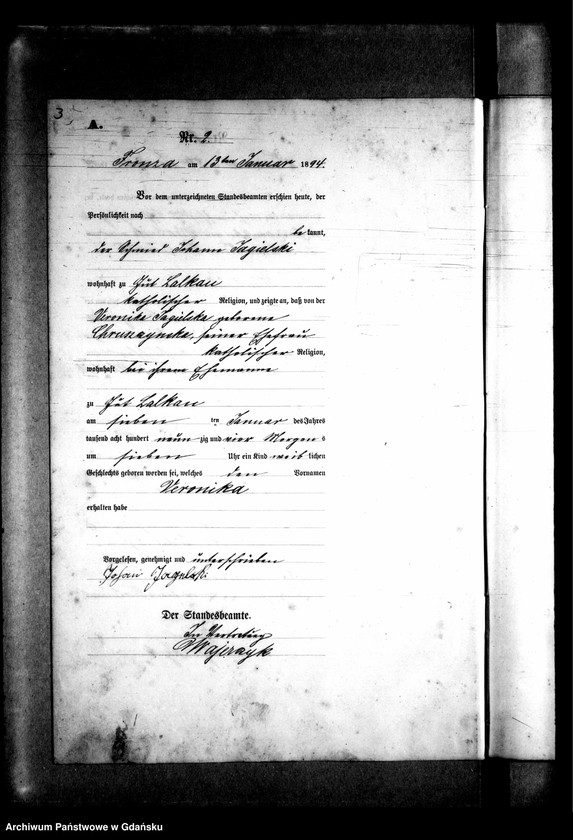 3
A.
Nr. 2.
Fronza am 13ten Januar 1894.
Vor dem unterzeichneten Standesbeamten erschien heute, der
Persönlichkeit nach
be kannt,
der Schmied Johann Jagielski
wohnhaft zu Gut Lalkau
katholischer Religion, und zeigte an, daß von der
Veronika Jagielska geborene
Chruszynska, seiner Ehefrau
katholischer Religion,
wohnhaft bei ihrem Ehemanne
zu Gut Lalkau
am sieben ten Januar des Jahres
tausend acht hundert neun zig und vier Morgen s
um sieben Uhr ein Kind weib lichen
Geschlechts geboren worden sei, welches den Vornamen
Veronika
erhalten habe
Vorgelesen, genehmigt und unterschrieben
Johan Jagielski
Der Standesbeamte.
In Vertretung
Majerzyk
Archiwum Państwowe w Gdańsku